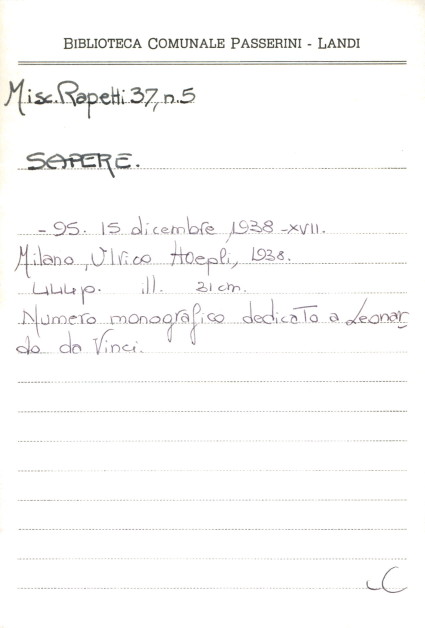 BIBLIOTECA COMUNALE PASSERINI - LANDI
Misc. Rapetti 37, n. 5
SAPERE.
- 95. 15 dicembre 1938 - XVII.
Milano, Ulrico Hoepli, 1938.
444 p. ill. 31 cm.
Numero monografico dedicato a Leonar
do da Vinci.